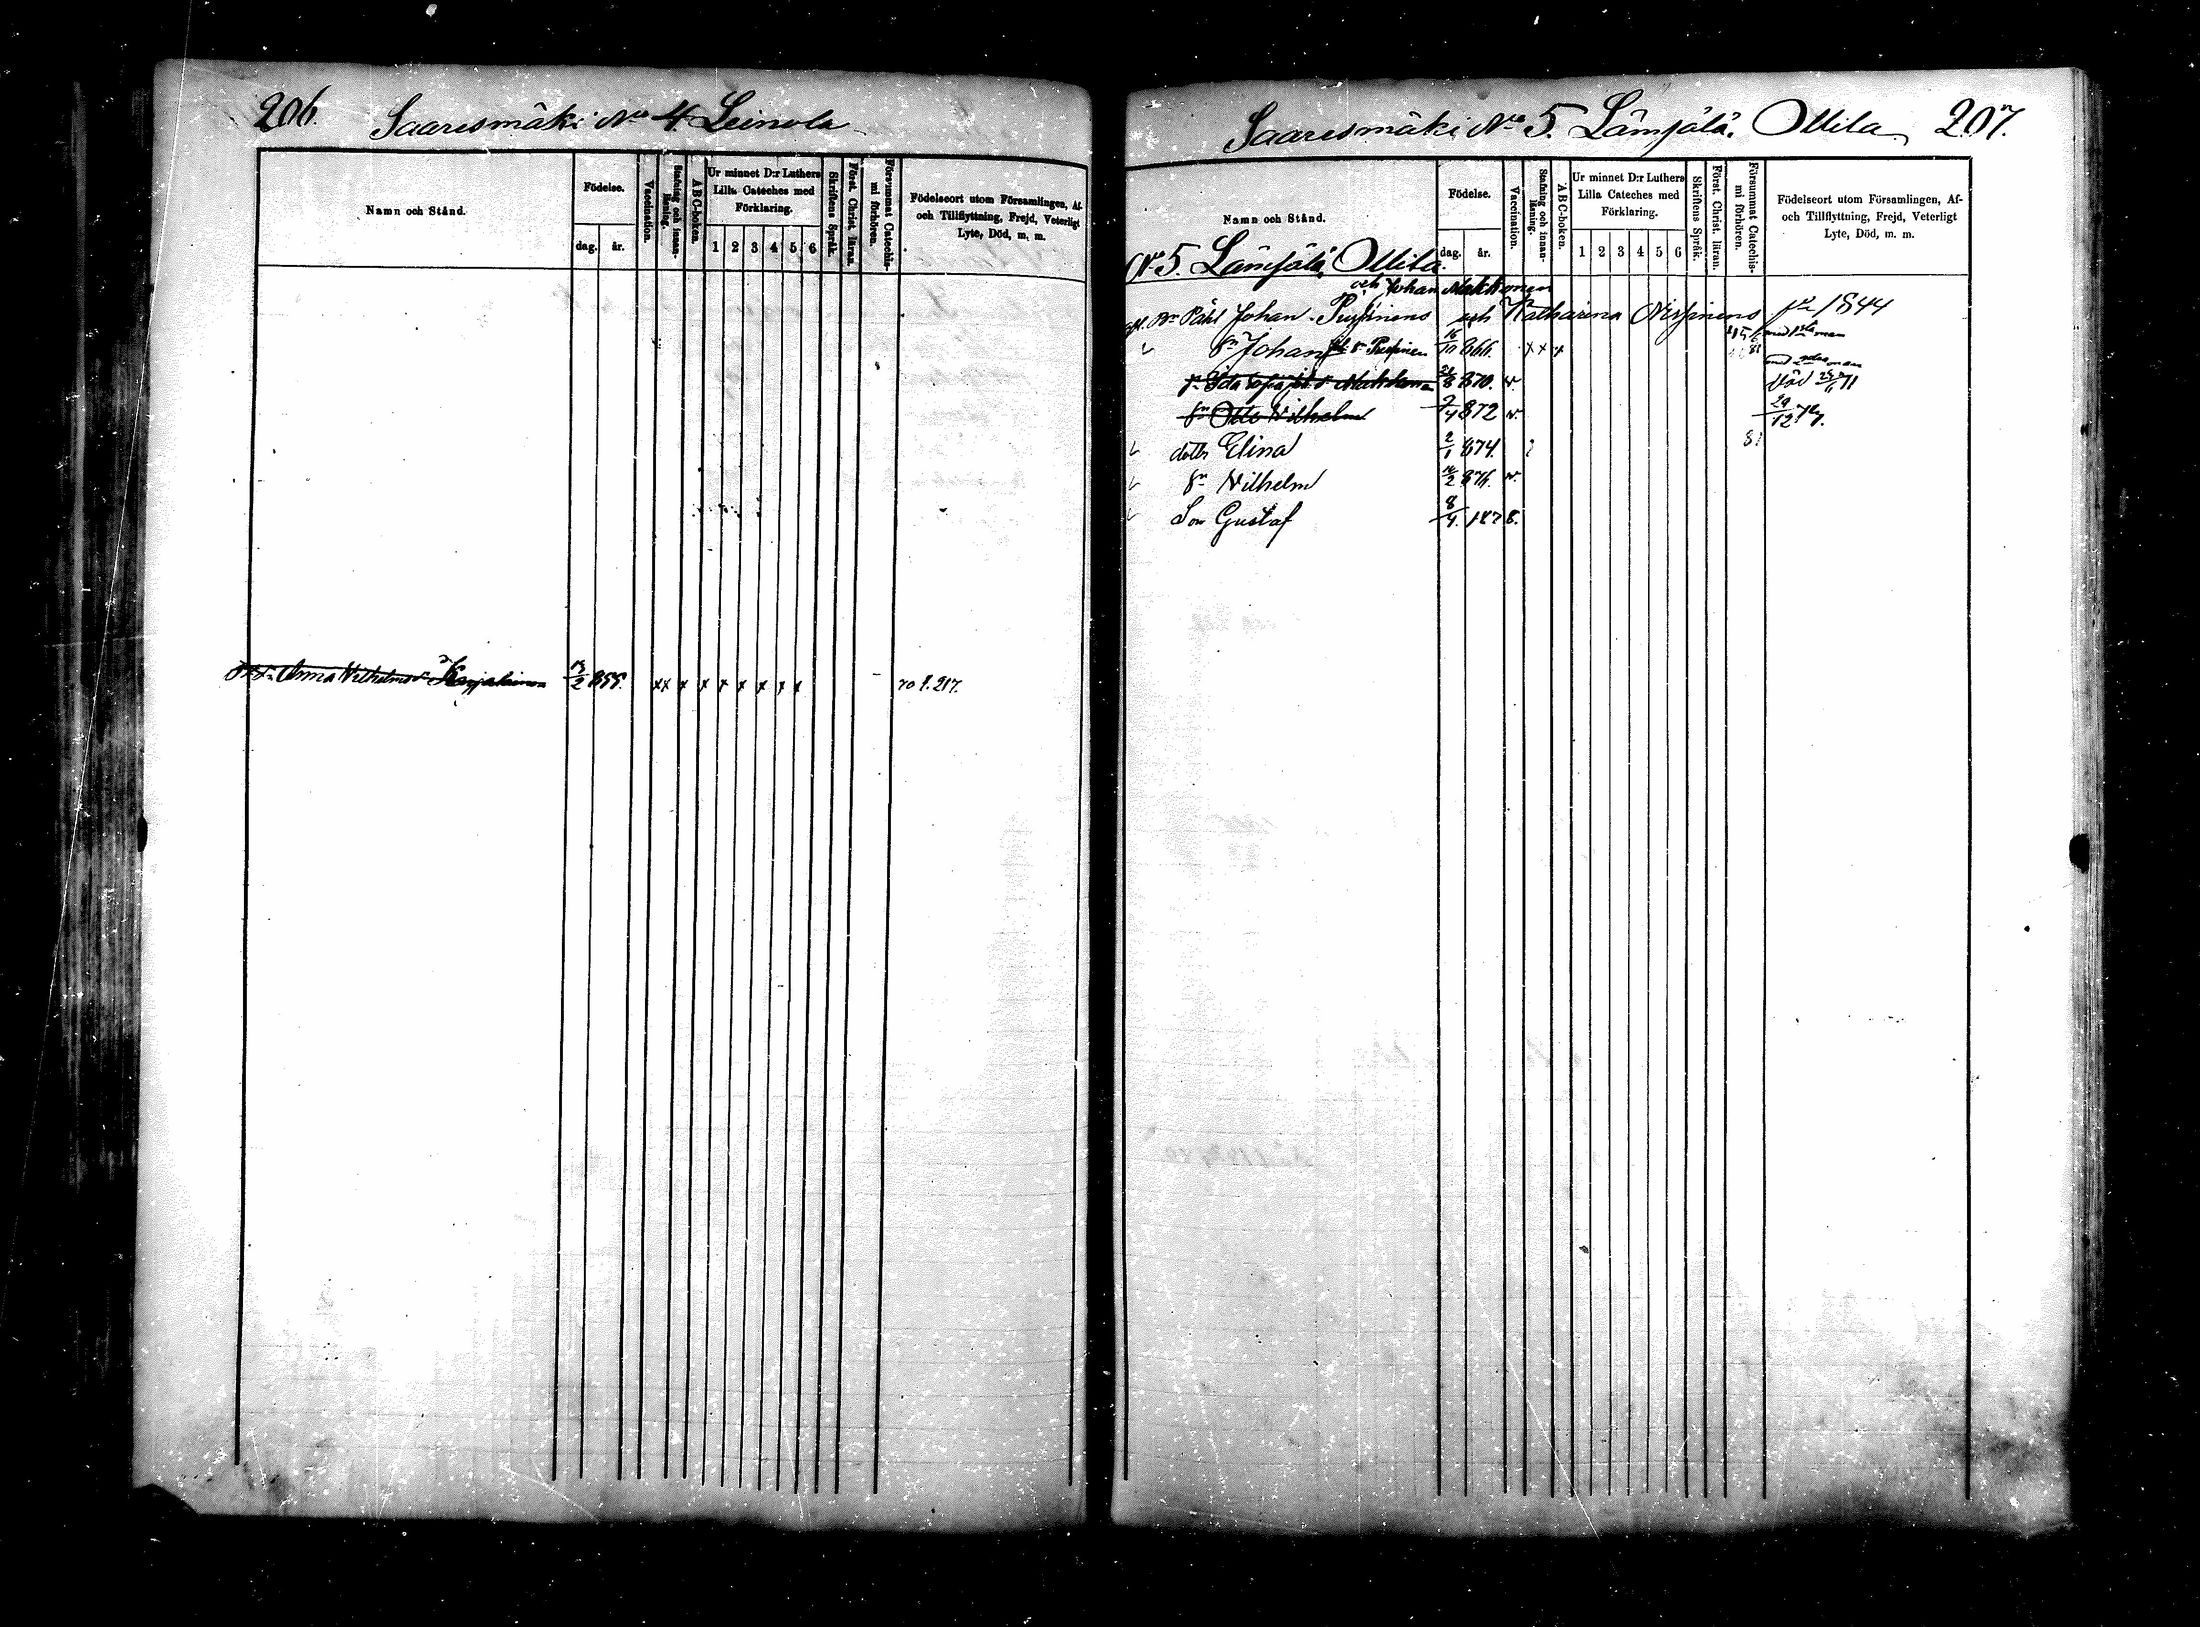 206.
Saaresmäki No 4. Leinola
Namn och Stånd.
Födelse.
dag.
år.
Vaccination.
Stafning och innan-läsning.
A B C-boken.
Ur minnet D:r Luthers
Lilla Cateches med
Förklaring.
1 2 3 4 5 6
Skriftens Språk.
Först. Christ. läran.
Försummat Catechis-
mi förhören.
Födelseort utom Församlingen, Af-
och Tillflyttning, Frejd, Veterligt
Lyte, Död, m. m.
Anna Wilhelmsdr Karjalainen 13/2 855. xx x x x x x x x 217.
Saaresmäki No 5. Lämsälä, Ollila 207.
Namn och Stånd.
Födelse.
dag.
år.
Vaccination.
Stafning och innan-läsning.
A B C-boken.
Ur minnet D:r Luthers
Lilla Cateches med
Förklaring.
1 2 3 4 5 6
Skriftens Språk.
Först. Christ. läran.
Försummat Catechis-
mi förhören.
Födelseort utom Församlingen, Af-
och Tillflyttning, Frejd, Veterligt
Lyte, Död, m. m.
No 5. Lämsälä, Ollila.
och Johan
Påhl Johan och Katharina Nissinens 1844
Sn Johan 866. x x x
870. v. död
Sn Otto Wilhelm 2/4 872 v. 29/12
dottr Elina 2/1 874. 81
Sn Wilhelm v.
Son Gustaf 8/4. 1878.